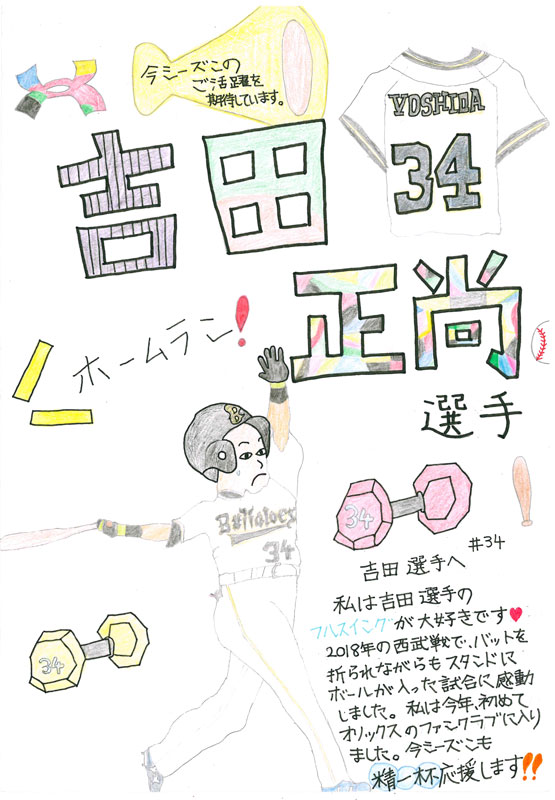 今シーズンの
ご活躍を
期待しています。
YOSHIDA
34
吉田
正尚
選手
ホームラン!
Buffaloes
34
34
34
#34
吉田選手へ
私は吉田選手の
フルスイングが大好きです♥
2018年の西武戦で、バットを
折られながらもスタンドに
ボールが入った試合に感動
しました。私は今年、初めて
オリックスのファンクラブに入り
ました。今シーズンも
精一杯応援します!!